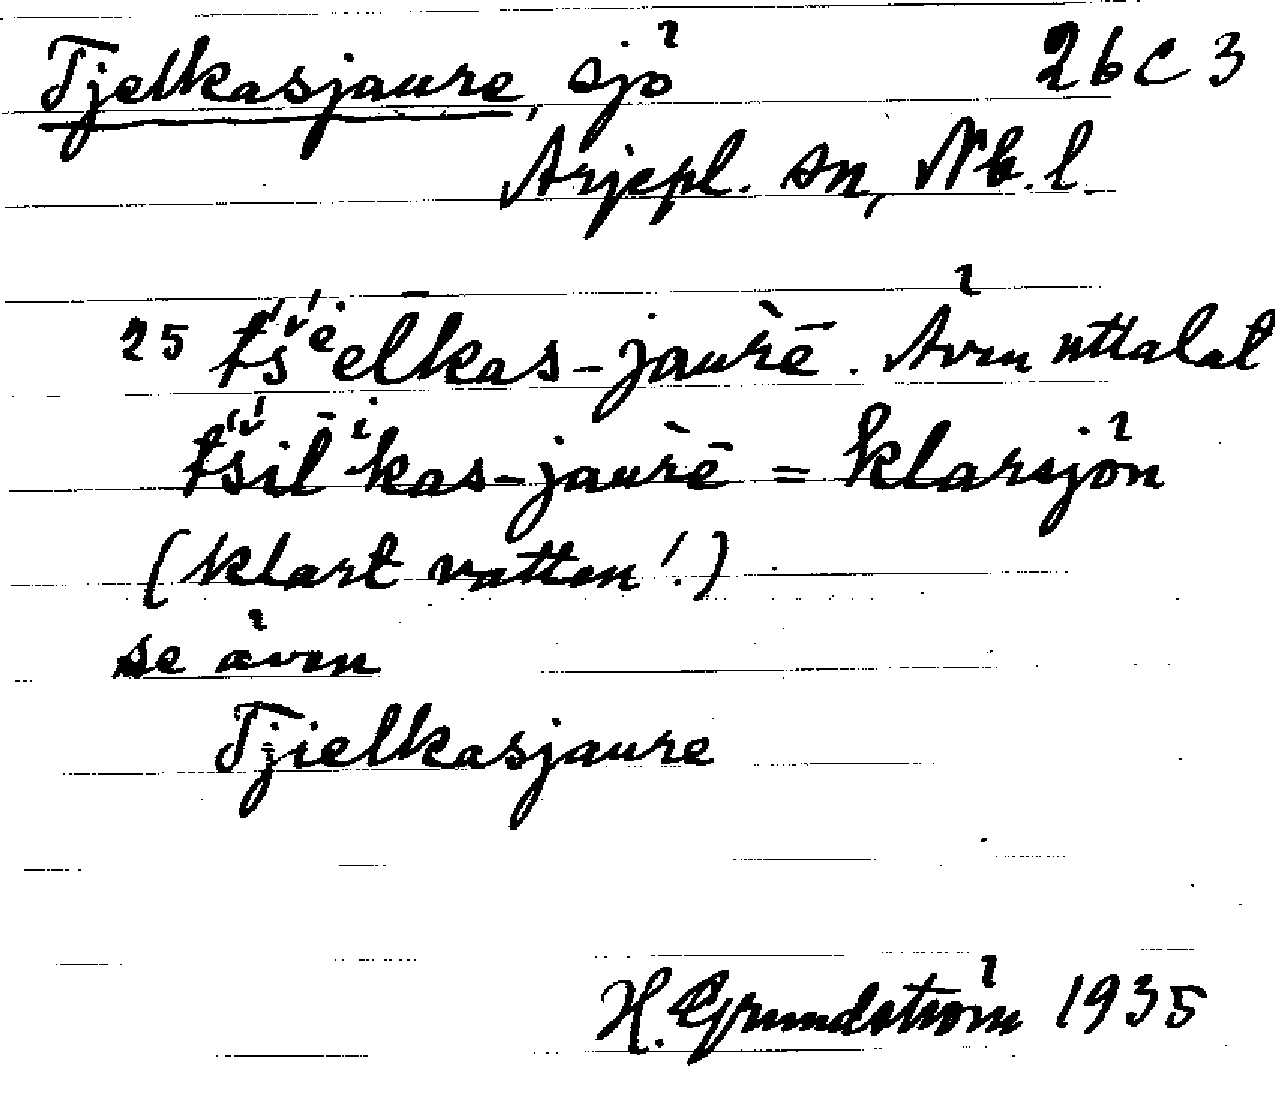 Tjelkasjaure, sjö 26 C 3
Arjepl. sn, Nb. l.
25 t́š́ėēlkas-jaùrē. Även uttalat
t́š́īlⁱkas-jaùrē = klarsjön
(klart vatten!)
se även
Tjielkasjaure
H. Grundström 1935